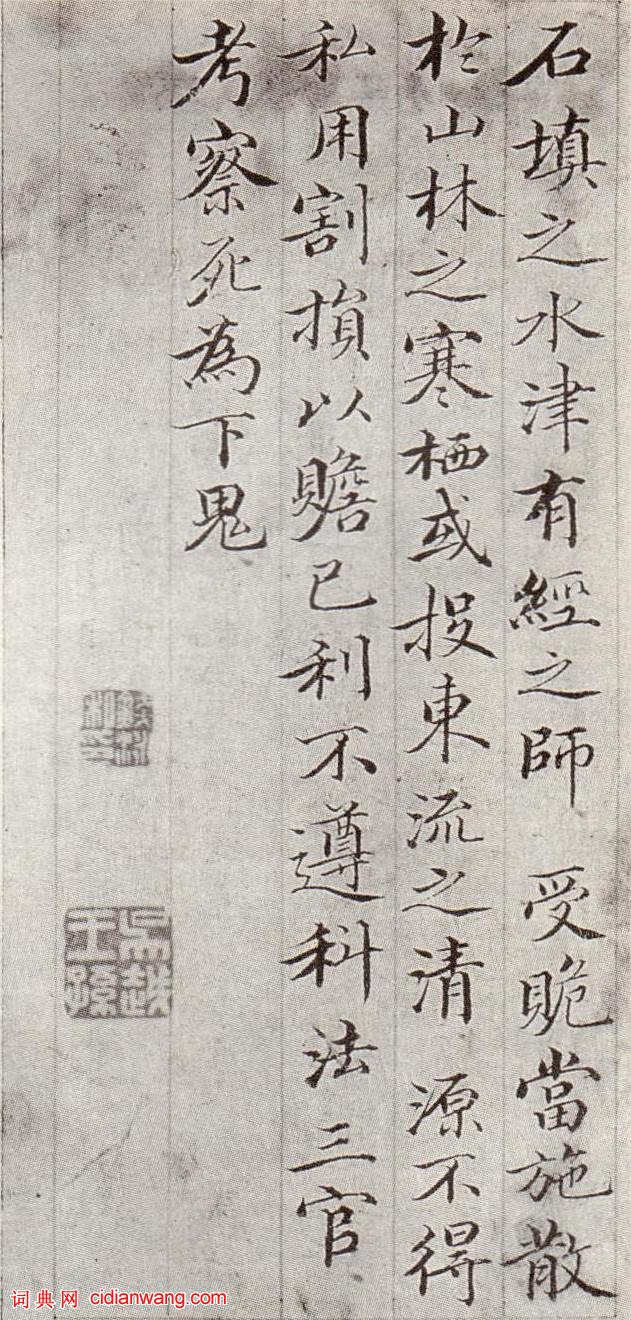 石填之水津有經之師受賍當施散
於山林之寒栖或投東流之清源不得
私用割損以贍已利不遵科法三官
考察死為下鬼
吳越王孫
词典网 cidianwang.com